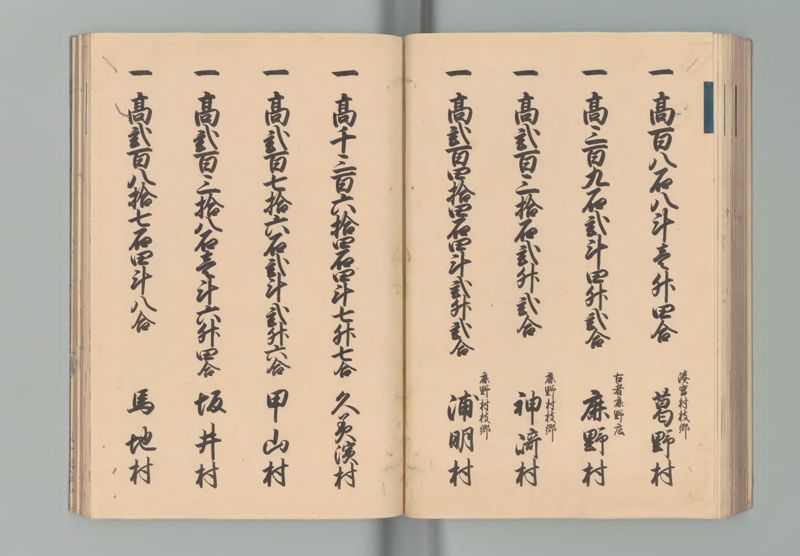 一 高百八石八斗壱升四合
湊宮村枝郷
葛野村
一 高三百九石弐斗四升弐合
古者鹿野庄
鹿野村
一 高弐百三拾石弐升弐合
鹿野村枝郷
神崎村
一 高弐百四拾四石四斗弐升弐合
鹿野村枝郷
浦明村
一 高千三百六拾四石四斗七升七合
久美浜村
一 高弐百七拾六石弐斗弐升六合
甲山村
一 高弐百三拾八石壱斗六升四合
坂井村
一 高弐百八拾七石四斗八合
馬地村